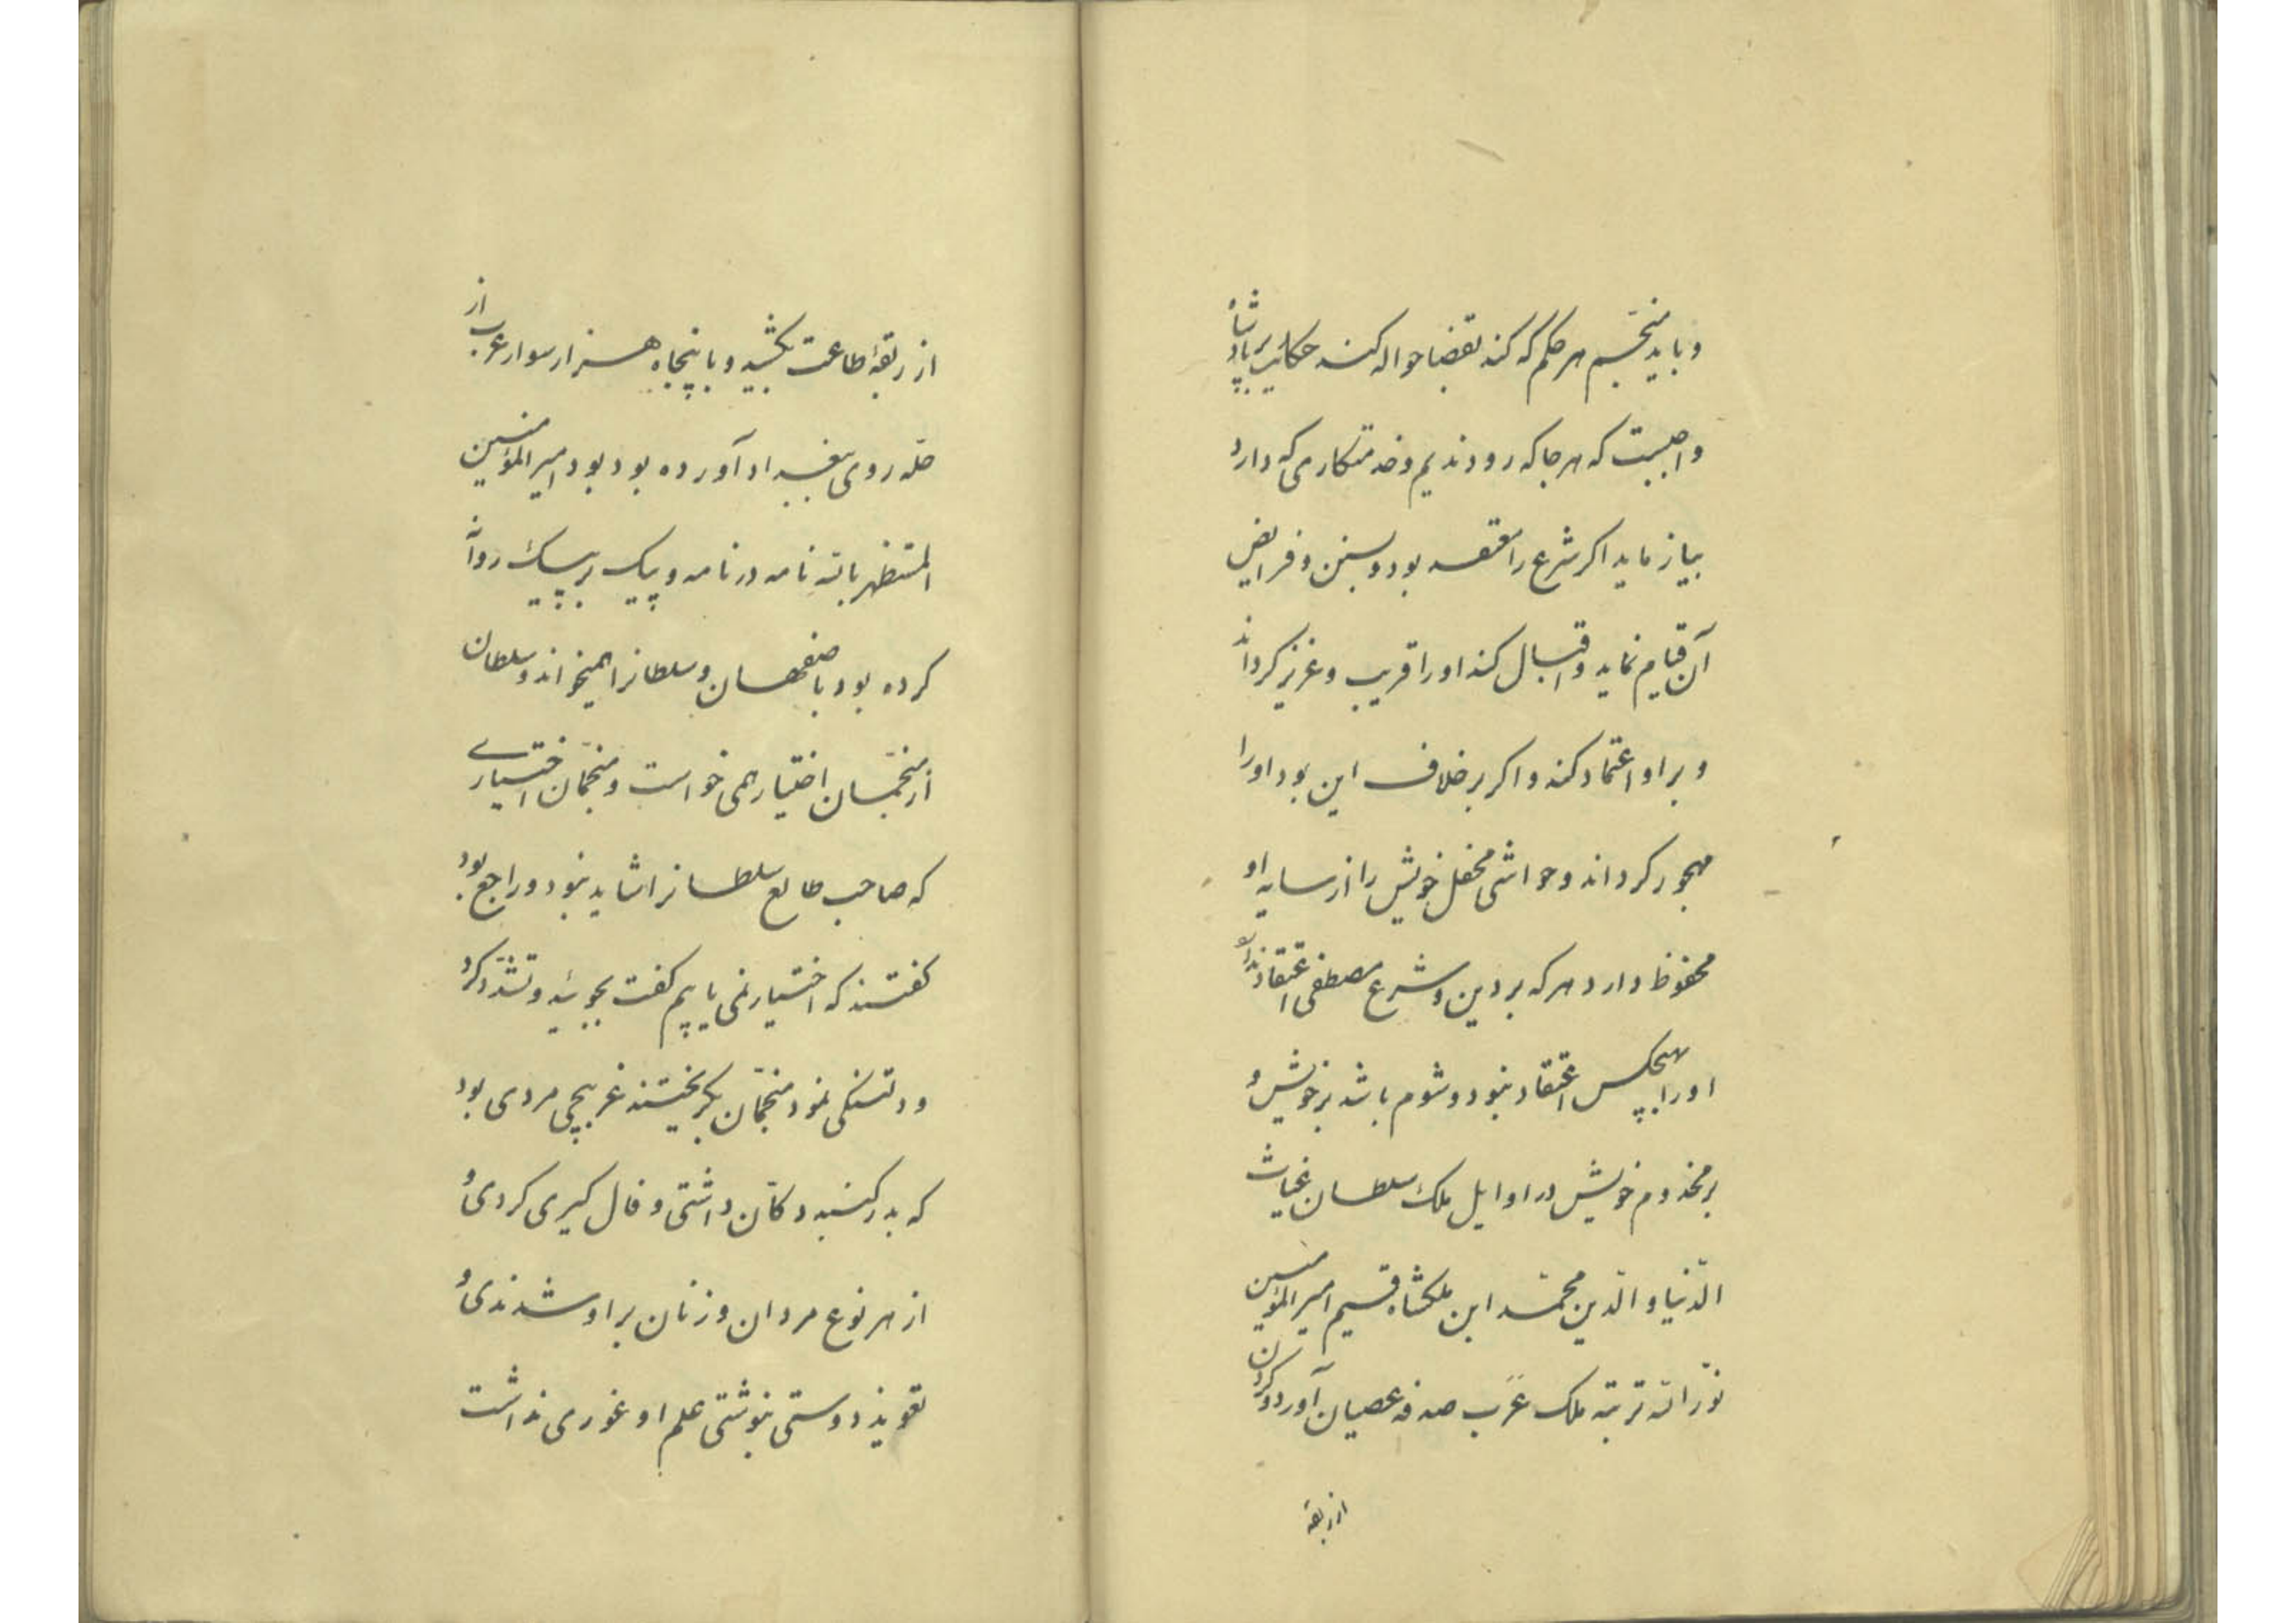 و باید منجم هر حکم که کند بقضا حواله کند حکایت بر پادشاه
واجبست که هر جا که رود ندیم و خدمتکاری که دارد
بیازماید اکر شرع را معتقد بود و بسنن و فرایض
آن قیام نماید و اقبال کند او را قریب و عزیز کرداند
و بر او اعتماد کند و اکر بر خلاف این بود او را
مهجور کرداند و حواشی محفل خویش را از سایه او
محفوظ دارد هر که بر دین و شرع مصطفی اعتقاد ندارد
او را بهیچکس اعتقاد نبود و شوم باشد بر خویش و
بر مخدوم خویش در اوایل ملک سلطان غیاث
الدّنیا و الدّین محمّد ابن ملکشاه قسیم امیر المؤمنین
نوّر اللّه تربته ملک عرب صدقه عصیان آورد و کردن
از ربقهٔ
از ربقهٔ اطاعت بکشید و با پنجاه هزار سوار عرب از
حلّه روی ببغداد آورده بود بود امیر المؤمنین
المستظهر باللّه نامه در نامه و پیک بر پیک روانه
کرده بود باصفهان و سلطانرا همیخواند و سلطان
از منجّمان اختیار همی خواست و منجّمان اختیاری
که صاحب طالع سلطانرا شاید نبود و راجع بود
کفتند که اختیار نمی یاییم کفت بجوئید و تشدّد کرد
و دلتنکی نمود منجّمان بکریختند غریبچی مردی بود
که بدر کنبد دکان داشتی و فال کیری کردی و
از هر نوع مردان و زنان بر او شدندی و
تعویذ دوستی بنوشتی علم او غوری نداشت